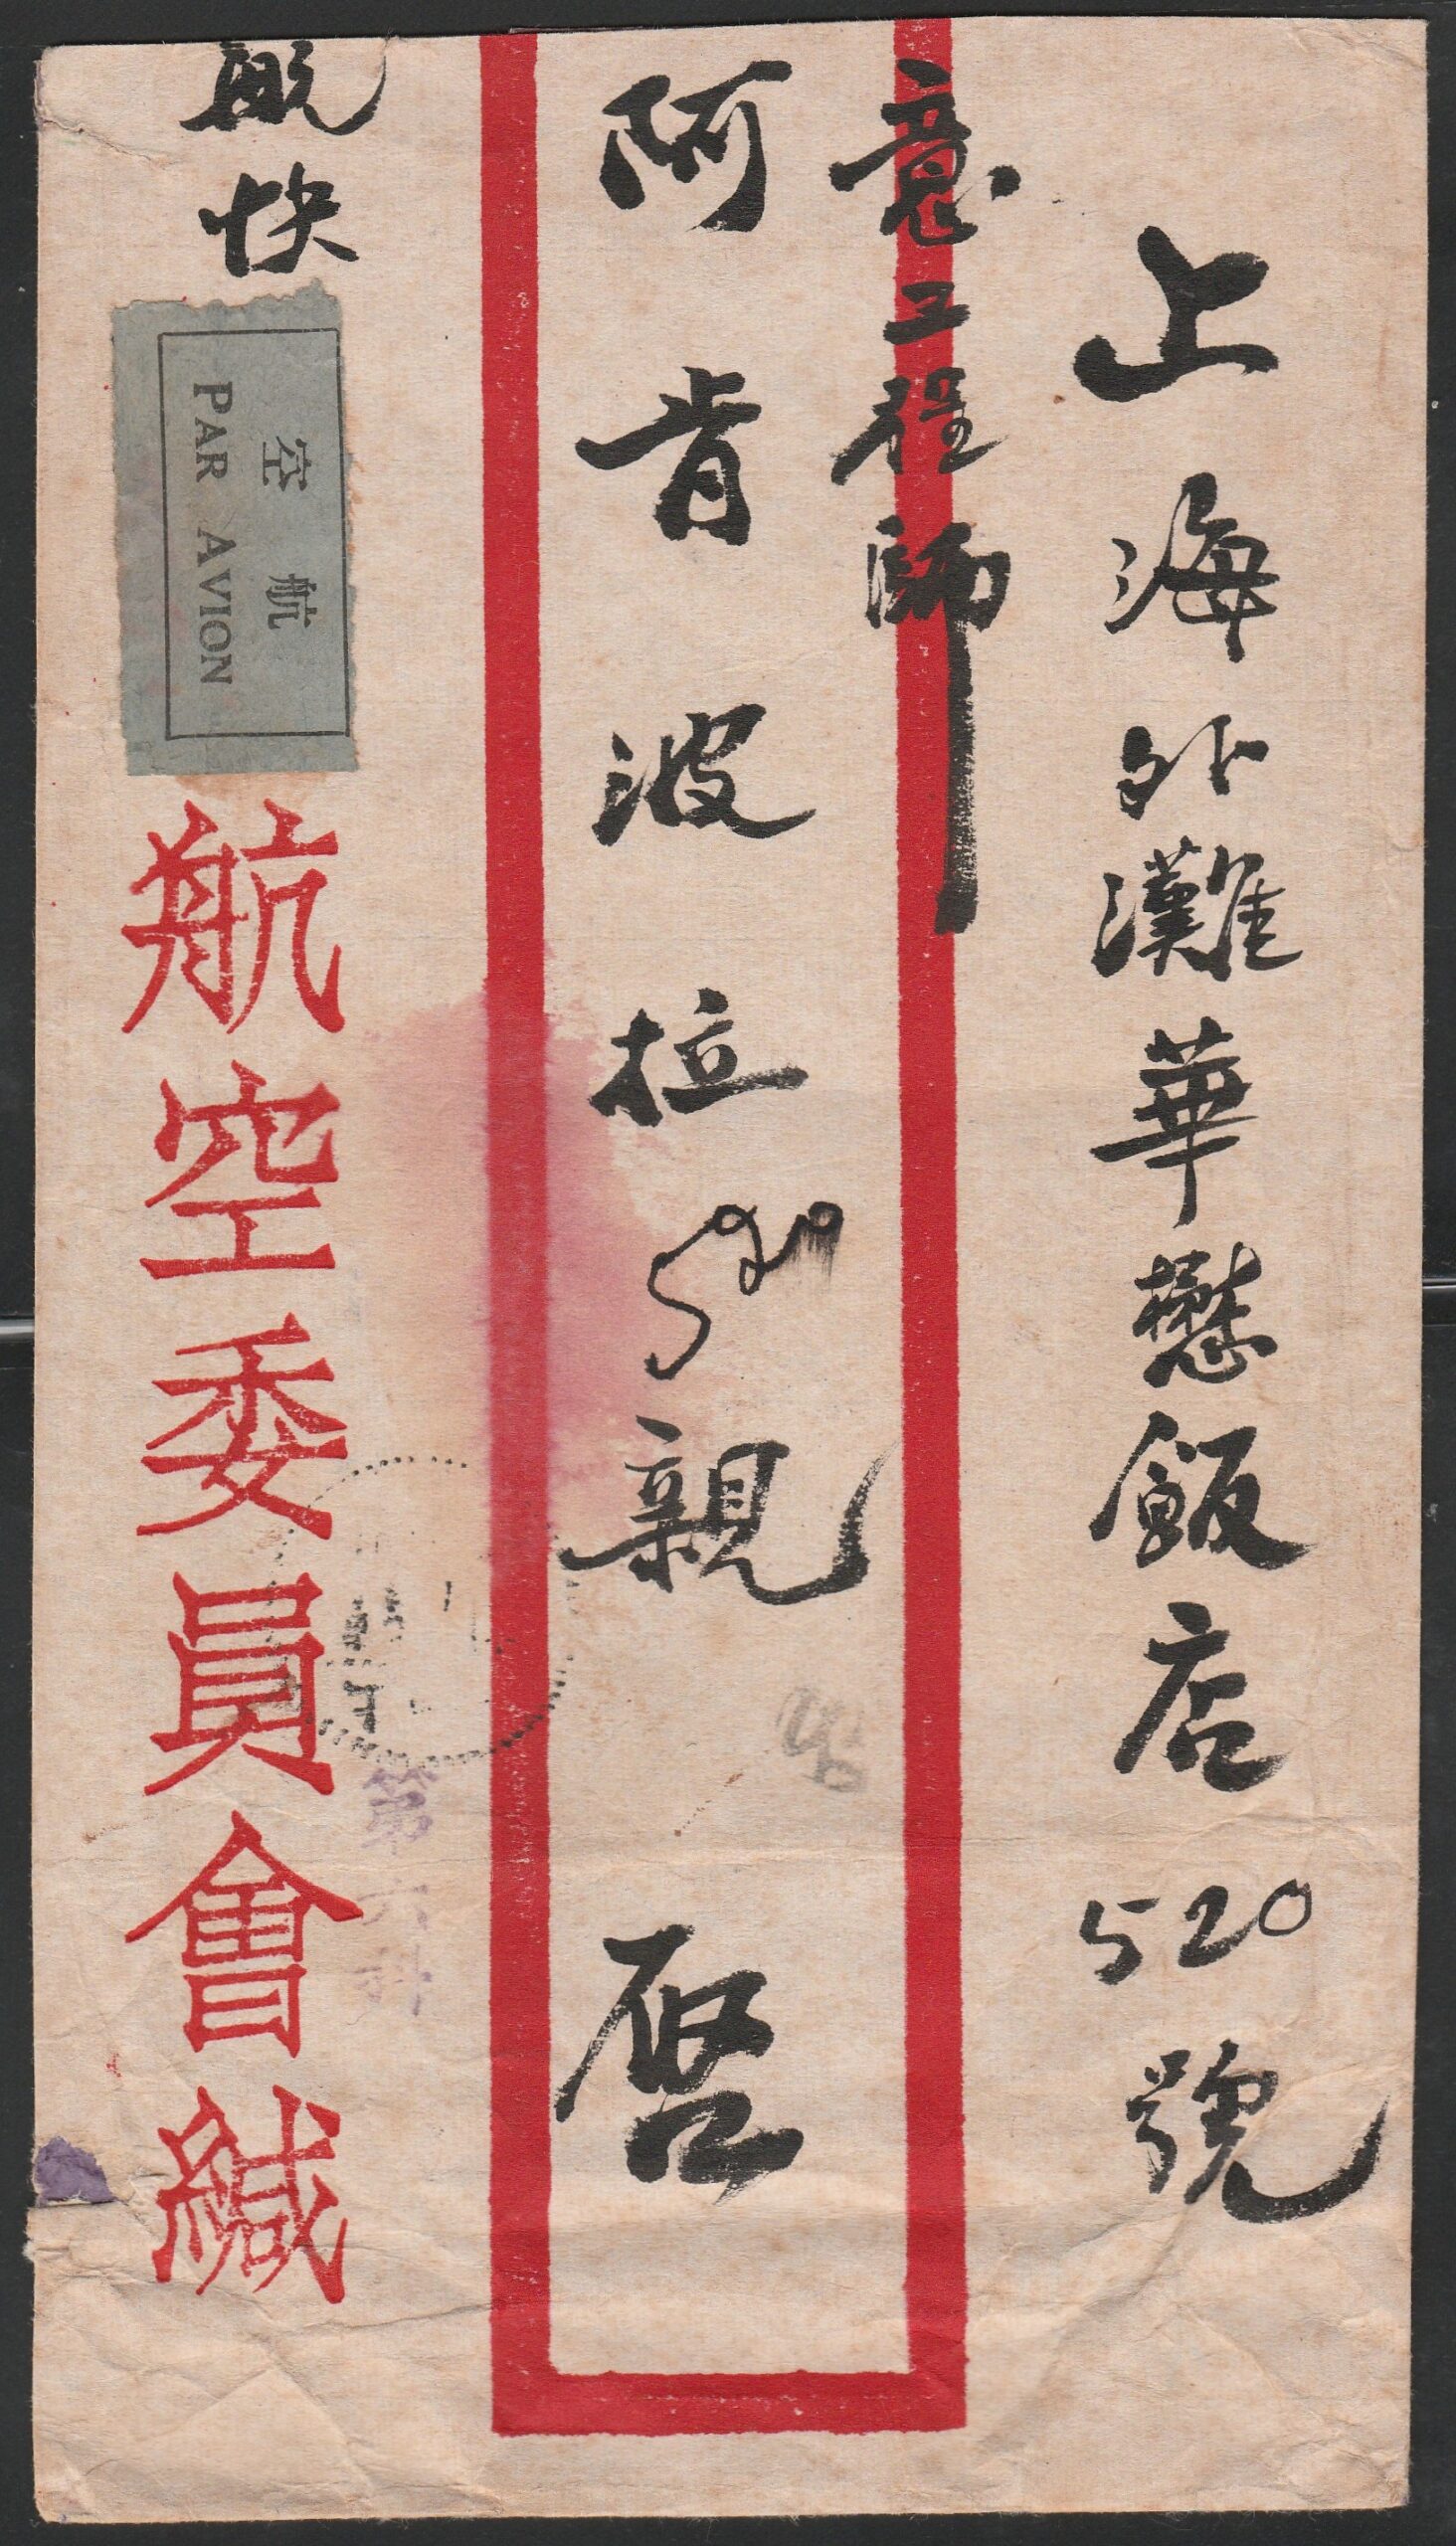 上海外灘華懋飯店520號
意工程師
阿肯波拉 親啓
航快
航空
PAR AVION
航空委員會緘
第六